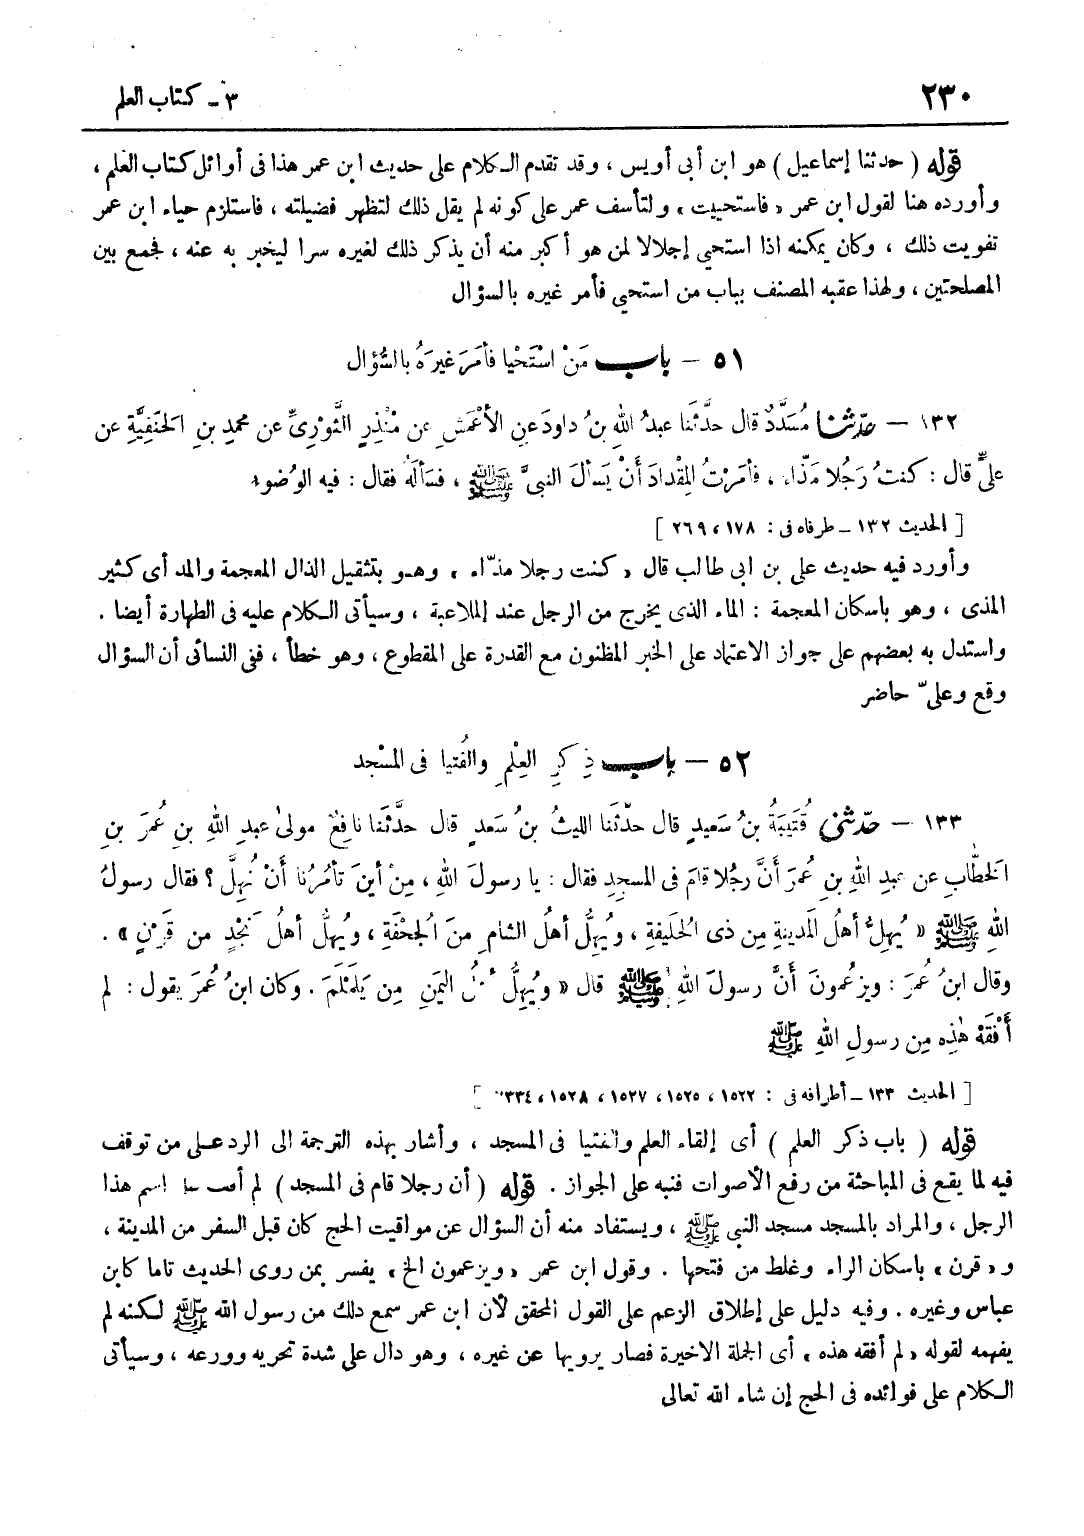 ٢٣٠
٣ - كتاب العلم
قوله ( حدثنا إسماعيل ) هو ابن أبى أويس ، وقد تقدم الكلام على حديث ابن عمر هذا فى أوائل كتاب العلم ،
وأورده هنا لقول ابن عمر « فاستحييت » ولتأسف عمر على كونه لم يقل ذلك لتظهر فضيلته ، فاستلزم حياء ابن عمر
تفويت ذلك ، وكان يمكنه اذا استحي إجلالا لمن هو أكبر منه أن يذكر ذلك لغيره سرا ليخبر به عنه ، فجمع بين
المصلحتين ، ولهذا عقبه المصنف بباب من استحي فأمر غيره بالسؤال
٥١ - باب مَنْ اسْتَحْيا فأمَرَ غيرَهُ بالسُّؤال
١٣٢ - حدّثنا مُسَدَّدٌ قال حدَّثَنا عبدُ اللهِ بنُ داودَ عنِ الأعْمَشِ عن مُنْذِرٍ الثَّوْرىِّ عن محمدِ بنِ الحَنفِيَّةِ عن
علىٍّ قال : كنتُ رَجُلا مَذّاء ، فأمَرْتُ المِقْدادَ أَنْ يَسألَ النبىَّ ﷺ ، فسَألَهُ فقال : فيه الوُضوء
[ الحديث ١٣٢ - طرفاه فى : ١٧٨ ، ٢٦٩ ]
وأورد فيه حديث على بن ابى طالب قال « كنت رجلا مذّاء » وهو بتثقيل الذال المعجمة والمد أى كثير
المذى ، وهو باسكان المعجمة : الماء الذى يخرج من الرجل عند الملاعبة ، وسيأتى الكلام عليه فى الطهارة أيضا .
واستدل به بعضهم على جواز الاعتماد على الخبر المظنون مع القدرة على المقطوع ، وهو خطأ ، ففى النسائى أن السؤال
وقع وعلىّ حاضر
٥٢ - باب ذِكرِ العِلْمِ والفُتيا فى المسْجد
١٣٣ - حدّثنى قُتَيبَةُ بنُ سَعيدٍ قال حدّثَنا الليثُ بنُ سَعدٍ قال حدَّثَنا نافِعٌ مولىٰ عبدِ اللهِ بنِ عُمَرَ بنِ
الخطّابِ عن عبدِ اللهِ بنِ عُمَرَ أَنَّ رجُلا قامَ فى المسجِدِ فقال : يا رسولَ اللهِ ، مِنْ أينَ تأمُرُنا أَنْ نُهِلَّ ؟ فقال رسولُ
اللهِ ﷺ « يُهِلُّ أهلُ المَدينةِ مِن ذى الحُلَيفةِ ، ويُهِلُّ أهلُ الشامِ مِنَ الجُحْفَةِ ، ويُهِلُّ أهلُ نَجْدٍ من قَرْنٍ » .
وقال ابنُ عُمَرَ : ويزعُمونَ أَنَّ رسولَ اللهِ ﷺ قال « ويُهِلُّ أهلُ اليَمنِ مِن يَلَمْلَمَ . وكان ابنُ عُمَرَ يقول : لم
أَفْقَهْ هٰذِه مِن رسولِ اللهِ ﷺ
[ الحديث ١٣٣ - أطرافه فى : ١٥٢٢ ، ١٥٢٥ ، ١٥٢٧ ، ١٥٢٨ ، ٧٣٣٤ ]
قوله ( باب ذكر العلم ) أى إلقاء العلم والفتيا فى المسجد ، وأشار بهذه الترجمة الى الرد على من توقف
فيه لما يقع فى المباحثة من رفع الأصوات فنبه على الجواز . قوله ( أن رجلا قام فى المسجد ) لم أقف على اسم هذا
الرجل ، والمراد بالمسجد مسجد النبى ﷺ ، ويستفاد منه أن السؤال عن مواقيت الحج كان قبل السفر من المدينة ،
و « قرن » باسكان الراء وغلط من فتحها . وقول ابن عمر « ويزعمون الخ » يفسر بمن روى الحديث تاما كابن
عباس وغيره . وفيه دليل على إطلاق الزعم على القول المحقق لأن ابن عمر سمع ذلك من رسول الله ﷺ لكنه لم
يفهمه لقوله « لم أفقه هذه » أى الجملة الاخيرة فصار يرويها عن غيره ، وهو دال على شدة تحريه وورعه ، وسيأتى
الكلام على فوائده فى الحج إن شاء الله تعالى